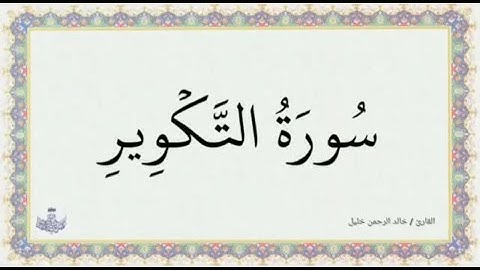 سُورَةُ التَّكْوِيرِ
القارئ / خالد الرحمن خليل